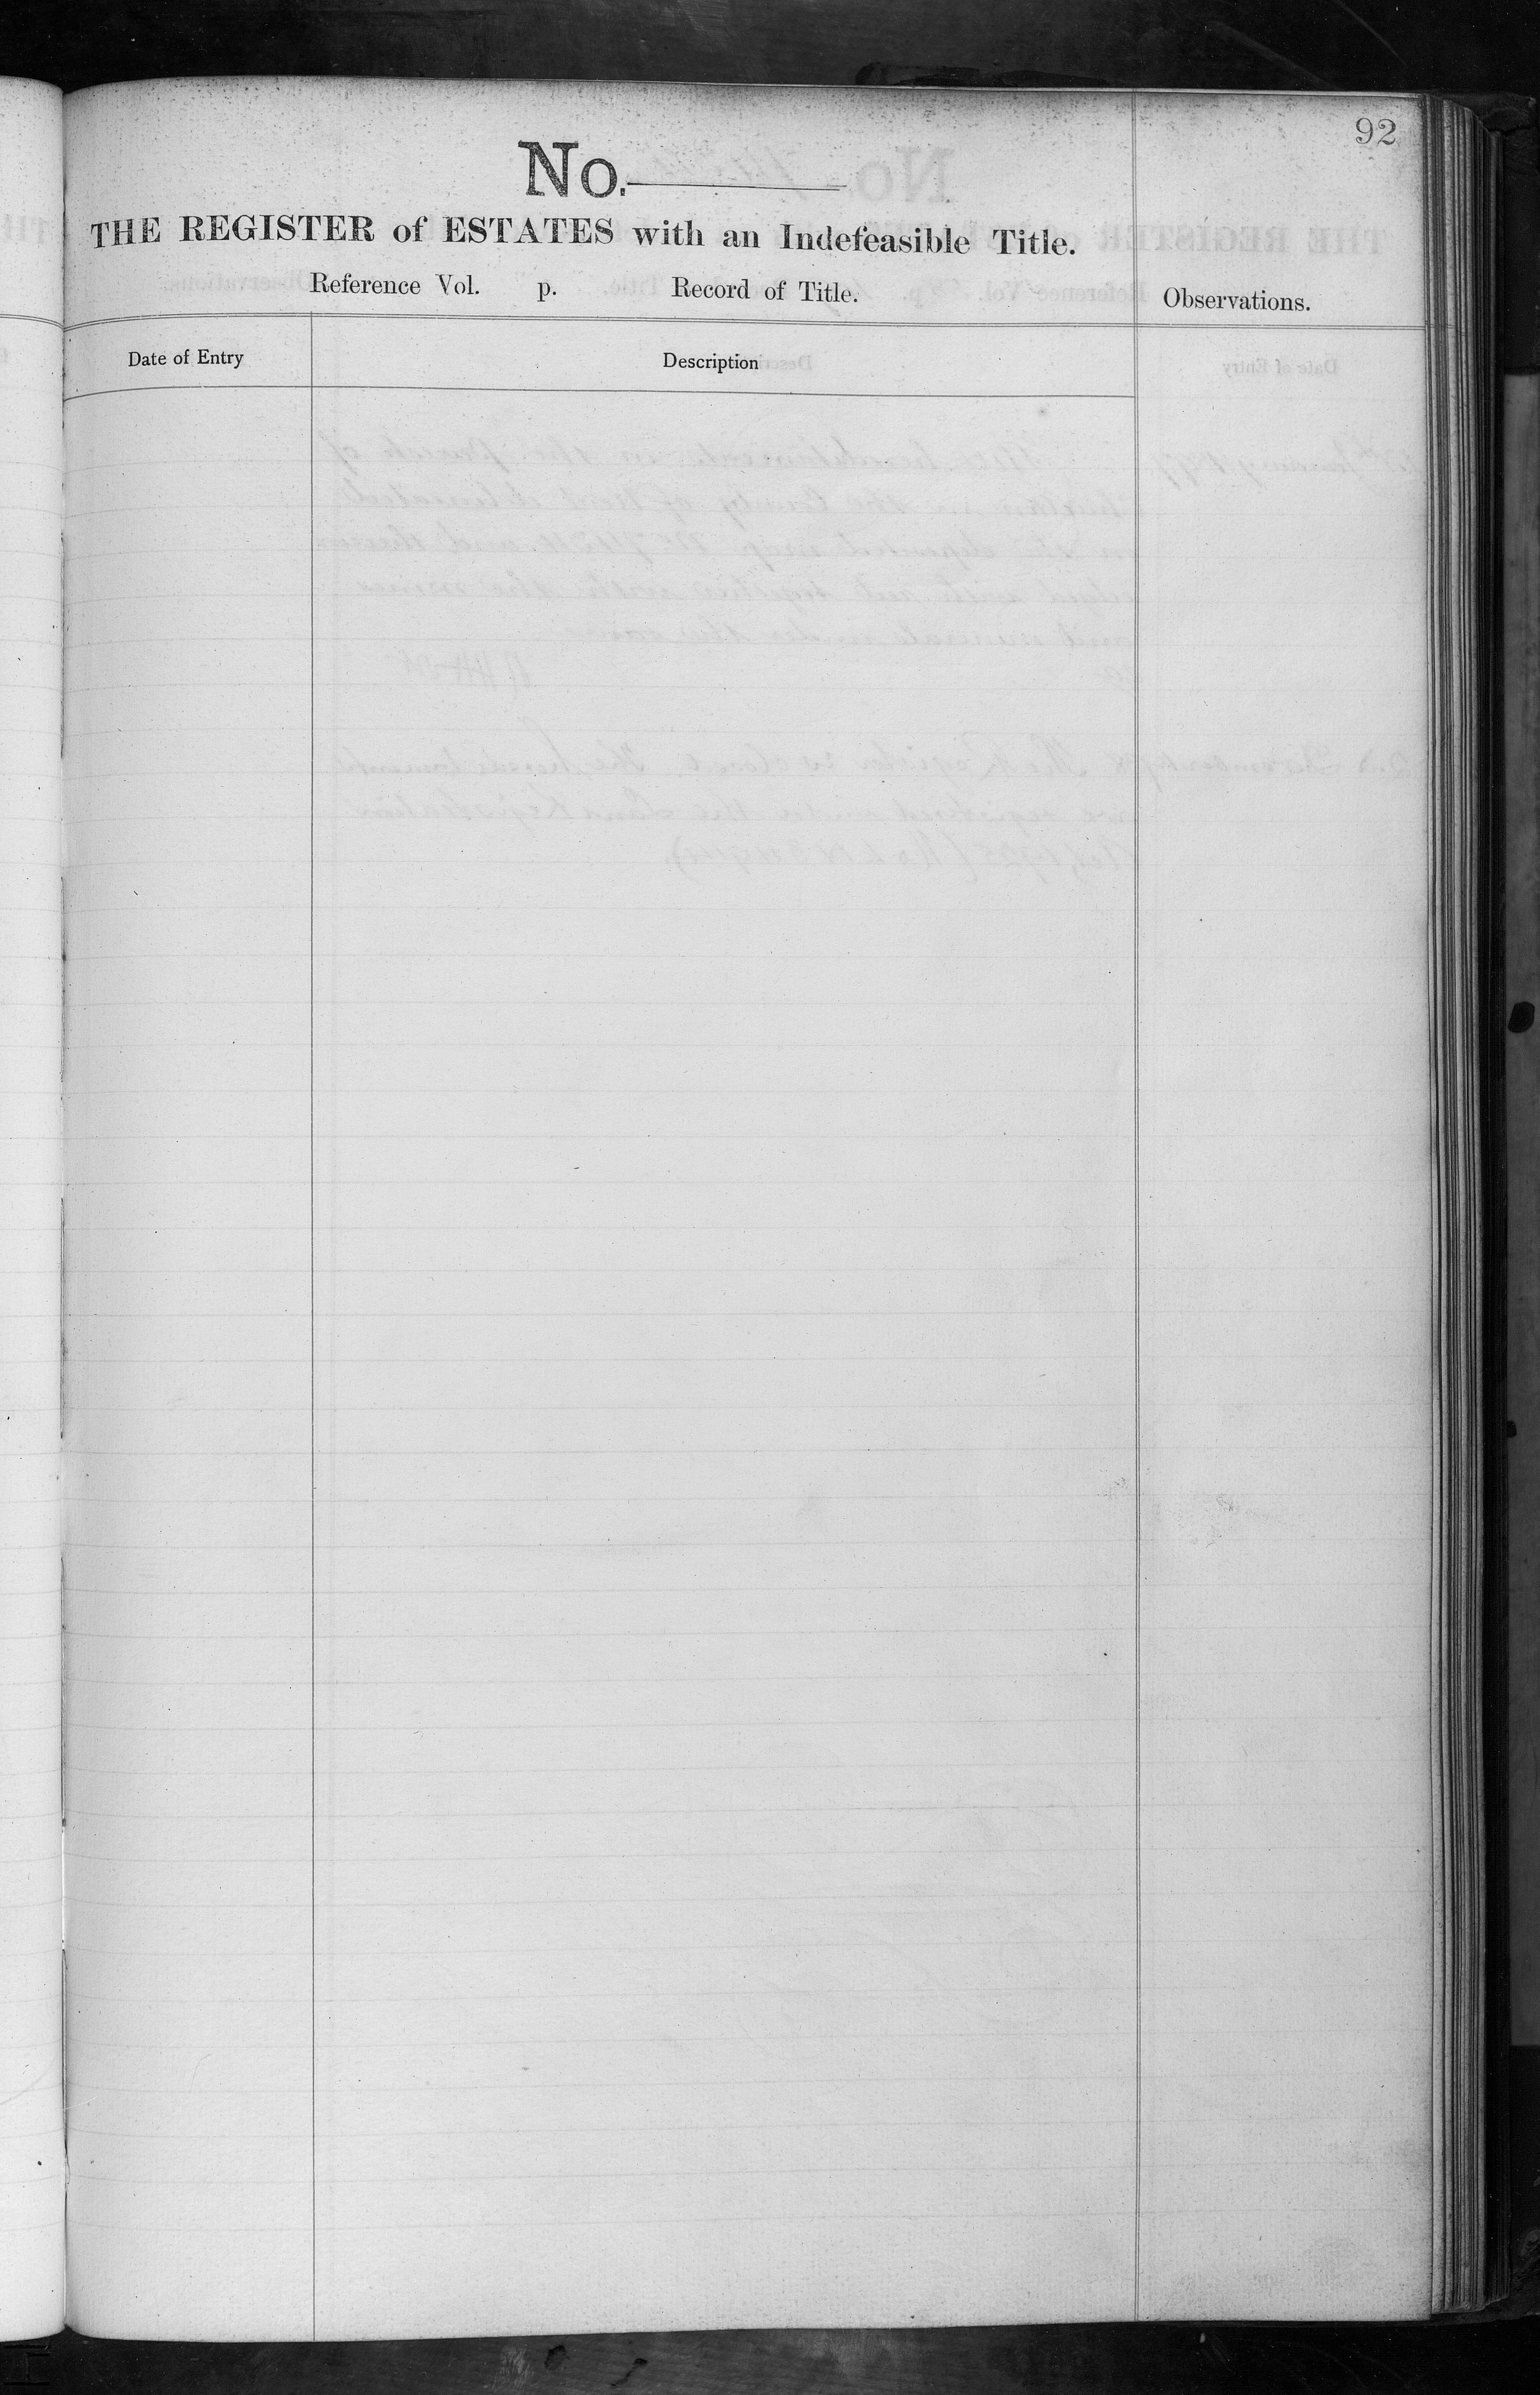 92
No.
THE REGISTER of ESTATES with an Indefeasible Title.
Reference Vol. p. Record of Title.
Observations.
Date of Entry
Description